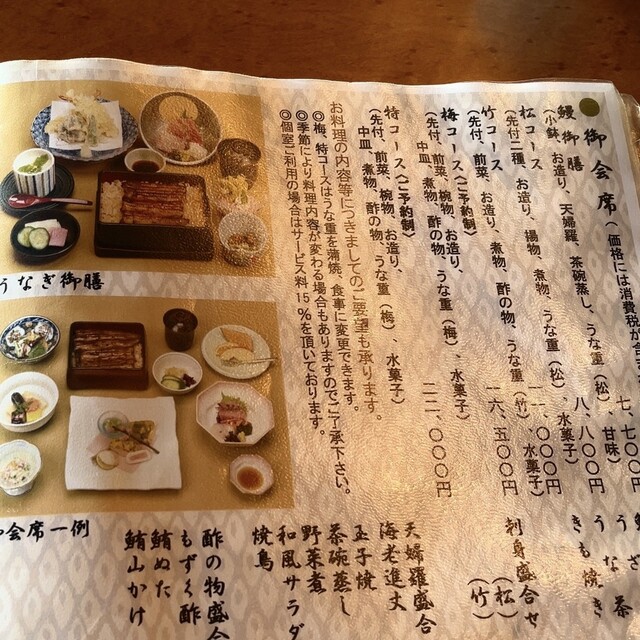 御会席（価格には消費税が含ま
鰻御膳　七、七〇〇円
（小鉢、お造り、天婦羅、茶碗蒸し、うな重（松）、甘味）
松コース　八、八〇〇円
（先付二種、お造り、揚物、煮物、うな重（松）、水菓子）
竹コース　一一、〇〇〇円
（先付、前菜、お造り、煮物、酢の物、うな重（竹）、水菓子）
梅コース（ご予約制）　一六、五〇〇円
（先付、前菜、椀物、お造り、
中皿、煮物、酢の物、うな重（梅）、水菓子）
特コース（ご予約制）　二二、〇〇〇円
（先付、前菜、椀物、お造り、
中皿、煮物、酢の物、うな重（梅）、水菓子）
お料理の内容等につきましてのご要望も承ります。
◎梅、特コースはうな重を蒲焼、食事に変更できます。
◎季節により料理内容が変わる場合もありますのでご了承下さい。
◎個室ご利用の場合はサービス料15％を頂いております。
うなぎ御膳
御会席一例
うな茶
きも焼き
刺身盛合せ（松）
（竹）
天婦羅盛合
海老進丈
玉子焼
茶碗蒸し
野菜煮
和風サラダ
焼鳥
酢の物盛合
もずく酢
鮪ぬた
鮪山かけ